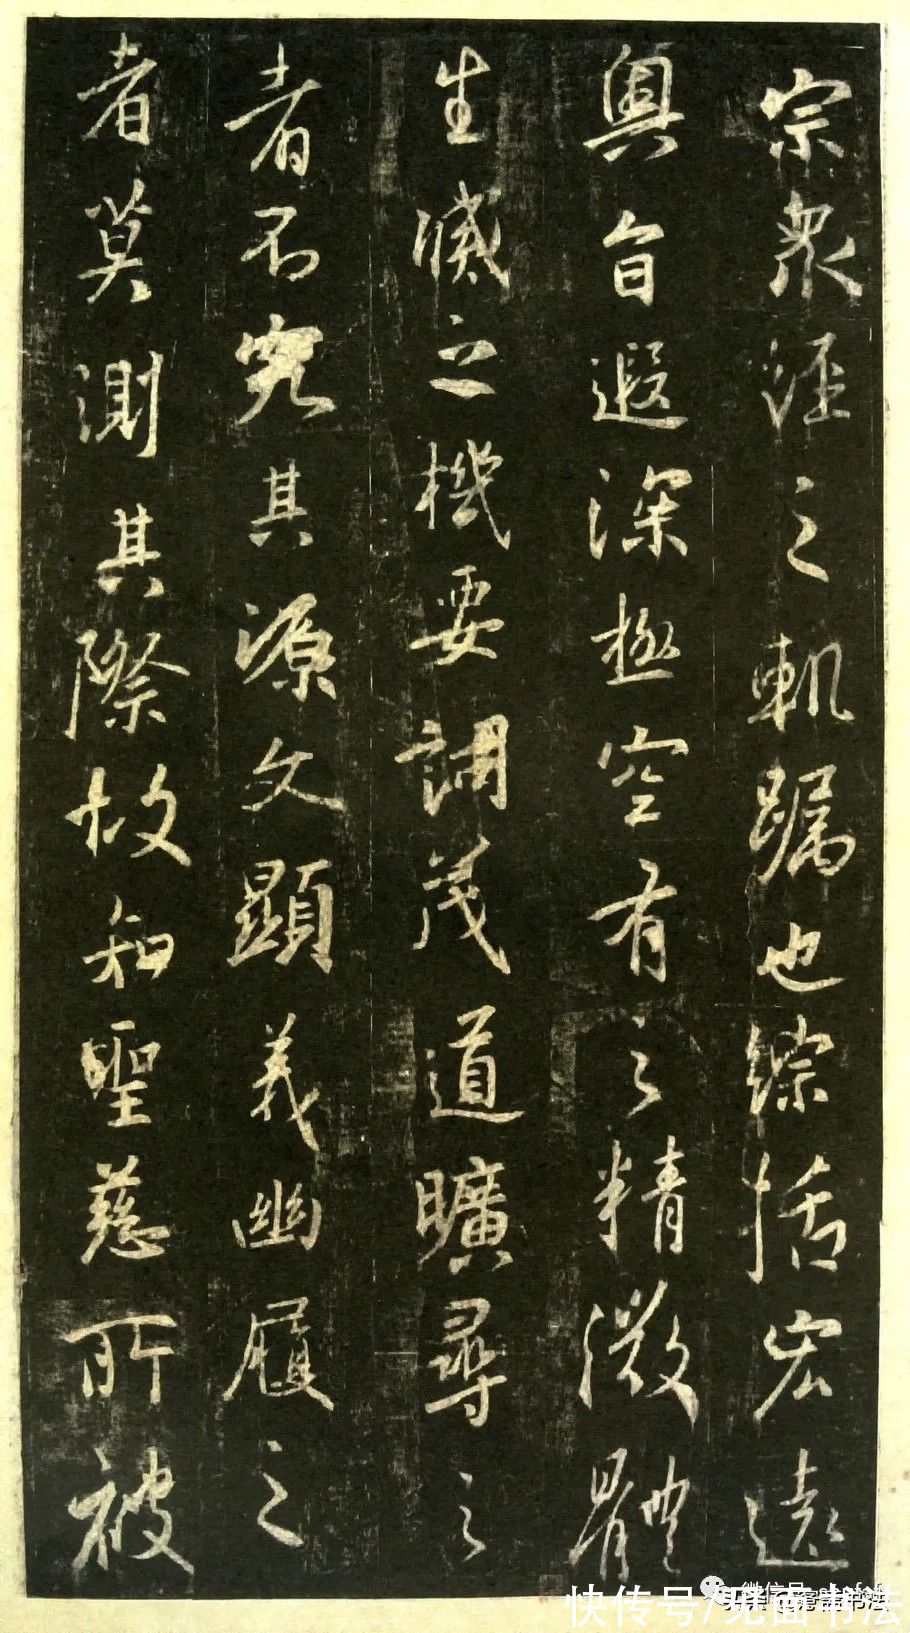 宗衆經之軌躅也綜括宏遠
奧旨遐深極空有之精微體
生滅之機要詞茂道曠尋之
者不究其源文顯義幽履之
者莫測其際故知聖慈所被
快传号/见面书法